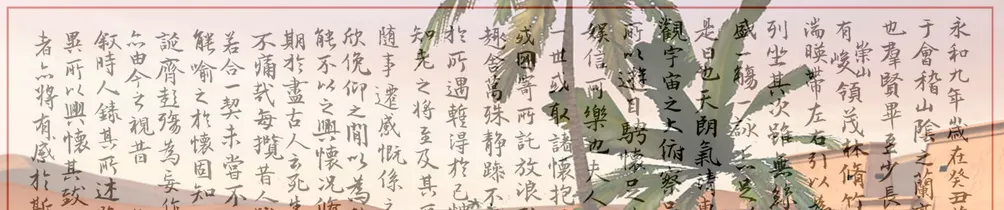 永和九年歲在癸丑
于會稽山陰之蘭
也群賢畢至少長
有崇山峻領茂林脩竹
湍暎帶左右引以
列坐其次雖無絲
盛一觴一詠亦足
是日也天朗氣清惠
觀宇宙之大俯察品
所以遊目騁懷足
娛信可樂也夫人
一世或取諸懷抱
或因寄所託放浪
趣舍萬殊靜躁不
於所遇蹔得於己
知老之將至及其
隨事遷感慨係之
欣俛仰之閒以為
能不以之興懷況脩
期於盡古人云死生
不痛哉每攬昔人
若合一契未嘗不
能喻之於懷固知
誕齊彭殤為妄作
亦由今之視昔
敘時人錄其所述
異所以興懷其致
者亦將有感於斯